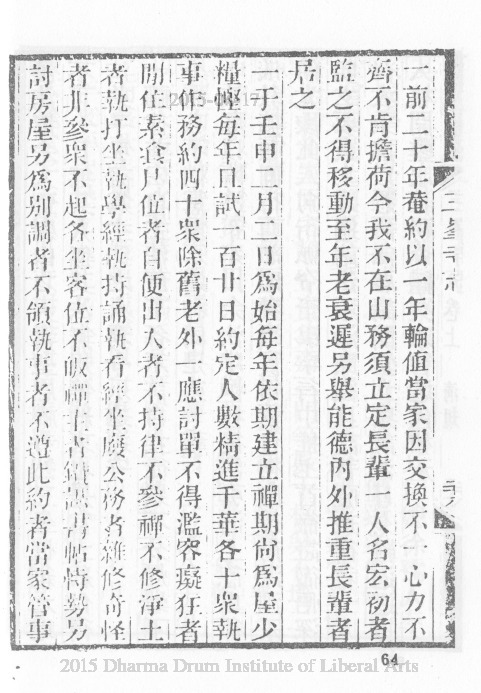 一前二十年菴約以一年輪值當家因交換不一心力不
齊不肯擔荷今我不在山務須立定長輩一人名宏礽者
監之不得移動至年老衰遲另舉能德內外推重長輩者
居之
一于壬申二月二日爲始每年依期建立禪期尚爲屋少
糧慳每年且試一百廿日約定人數精進千華各十衆執
事任務約四十衆除舊老外一應討單不得濫容癡狂者
閒住素飡尸位者自便出入者不持律不參禪不修淨土
者執打坐執學經執持誦執看經坐廢公務者雜修奇怪
者非參衆不起各坐客位不皈禪主者鑽謀書帖恃勢另
討房屋另爲別調者不領執事者不遵此約者當家管事
三峯寺志
卷上
64
2015-04-17
2015 Dharma Drum Institute of Liberal Arts